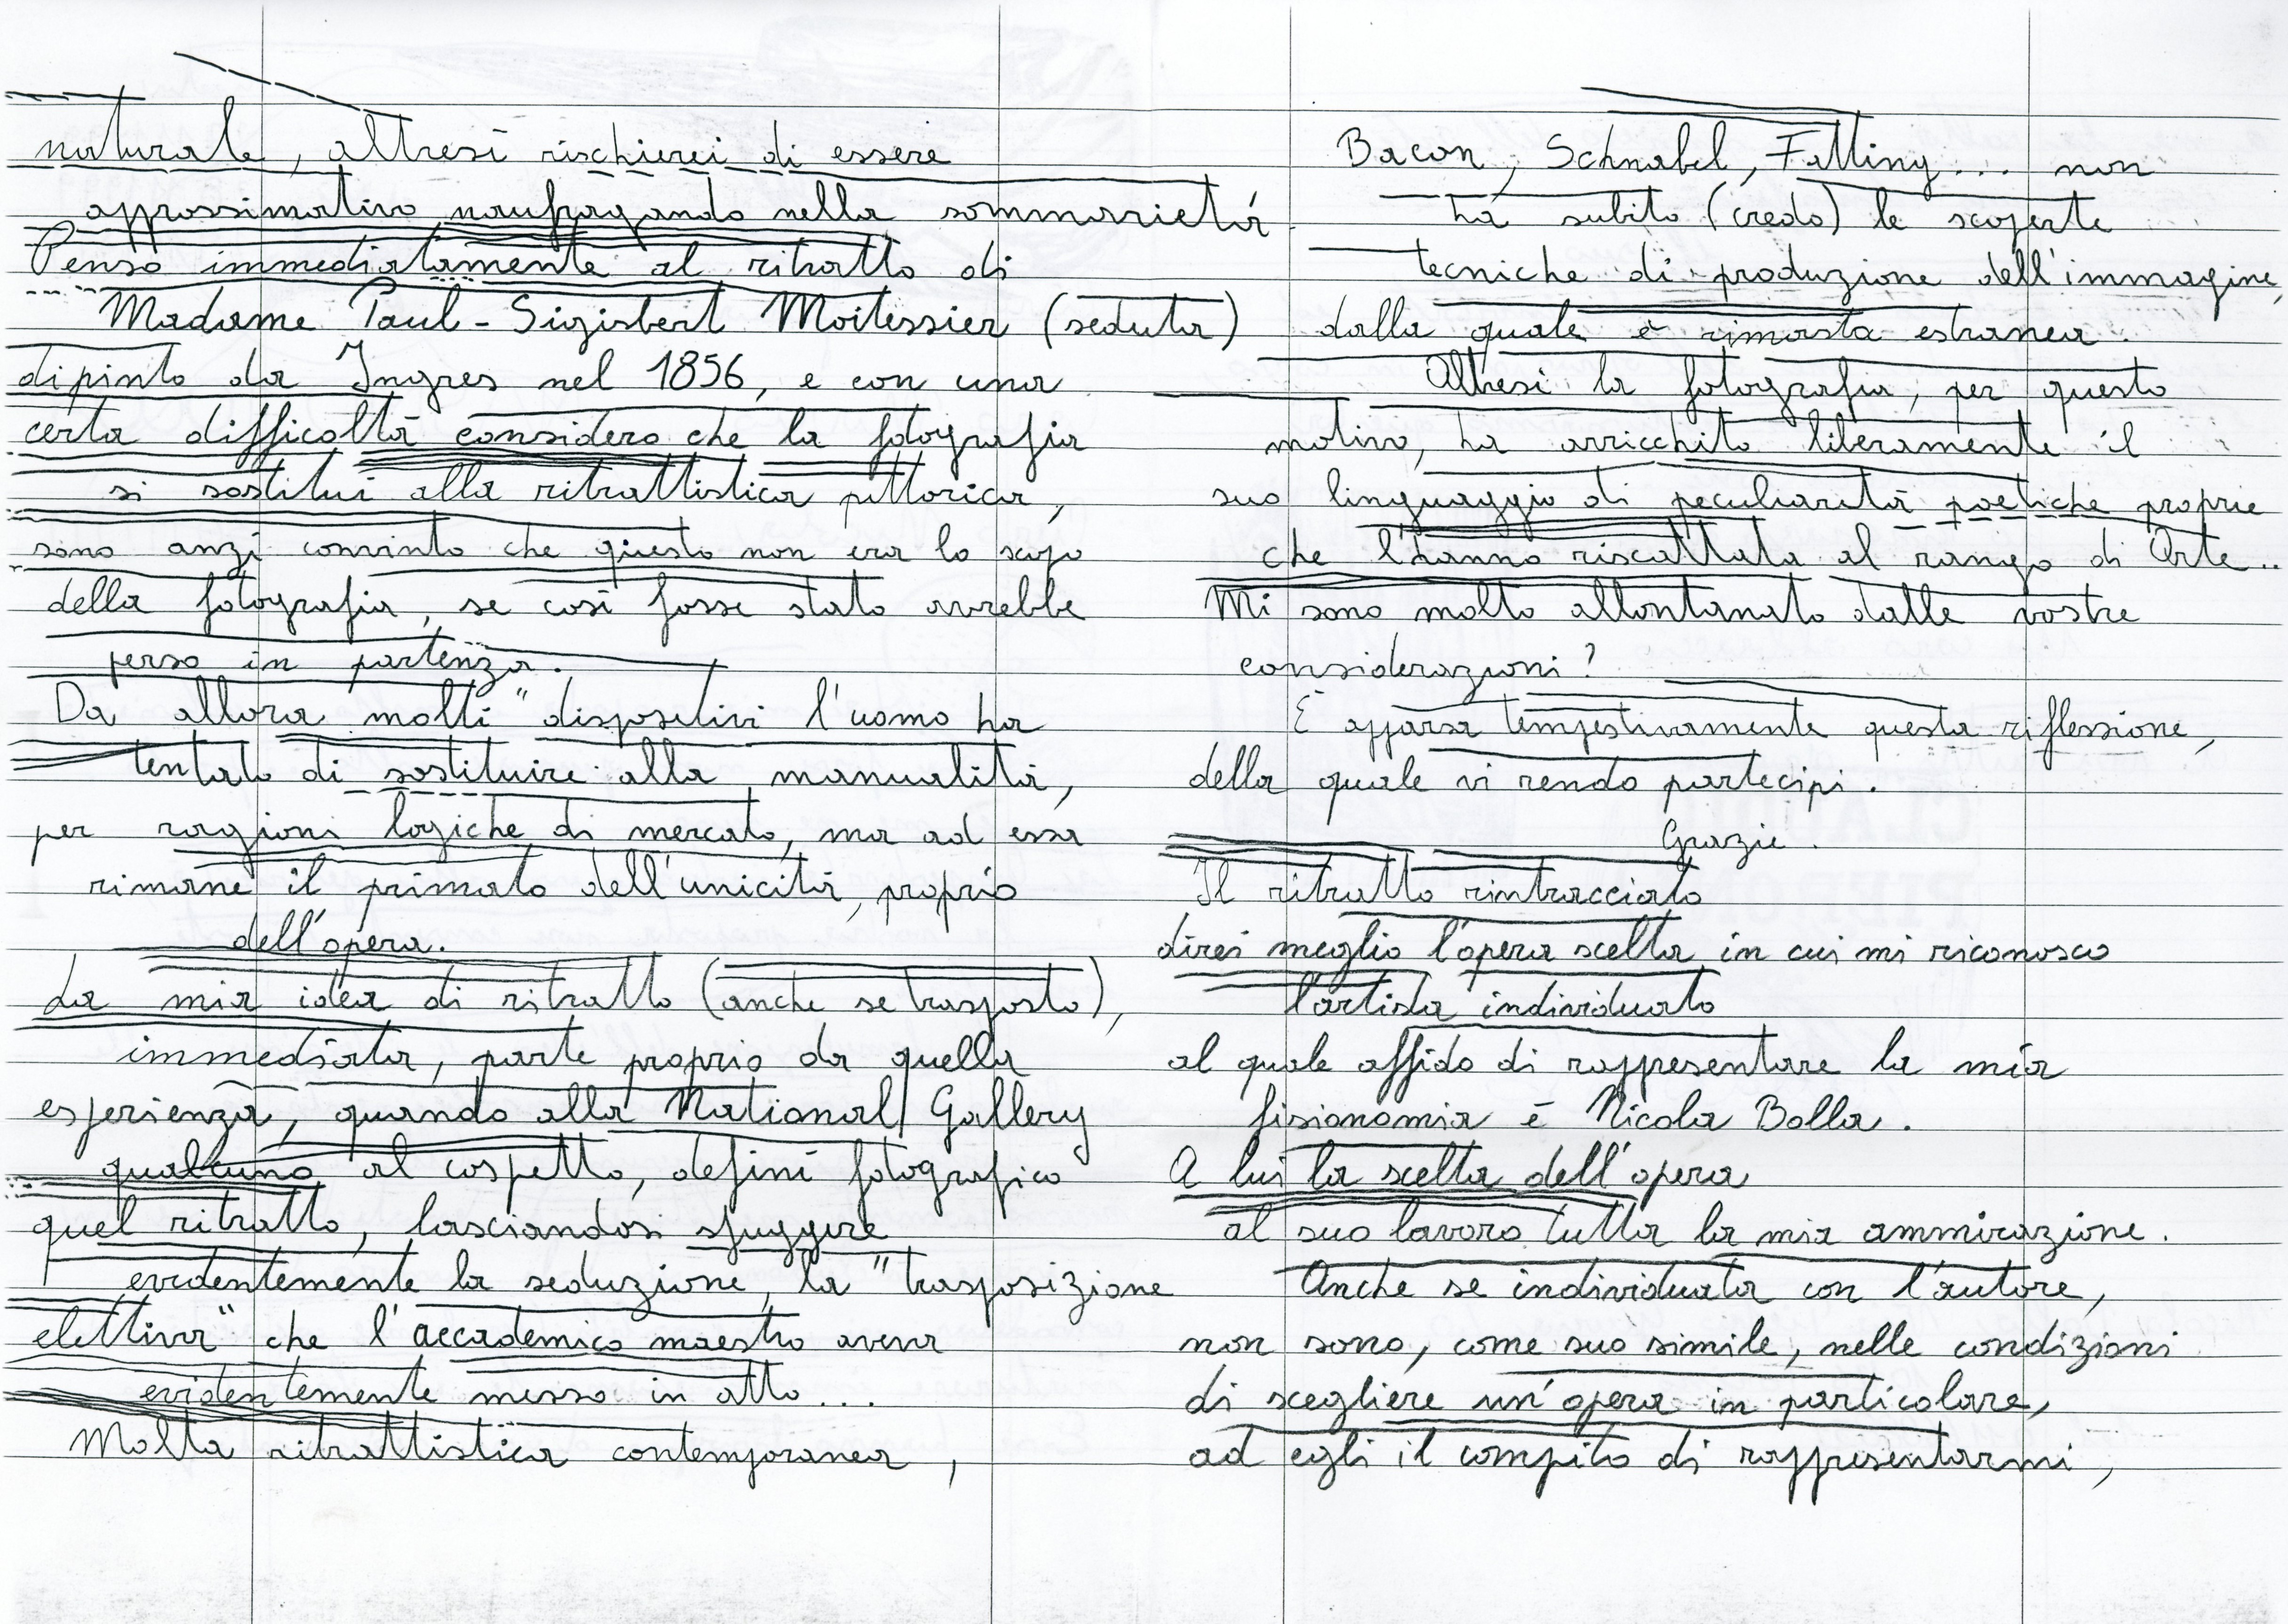 naturale, altresì rischierei di essere
approssimativo naufragando nella sommarietà
Penso immediatamente al ritratto di
Madame Paul-Sigisbert Moitessier (seduta)
dipinto da Ingres nel 1856, e con una
certa difficoltà considero che la fotografia
si sostituì alla ritrattistica pittorica,
sono anzi convinto che questo non era lo scopo
della fotografia, se così fosse stato avrebbe
perso in partenza.
Da allora molti "dispositivi l'uomo ha
tentato di sostituire alla manualità,
per ragioni logiche di mercato, ma ad essa
rimane il primato dell'unicità, proprio
dell'opera.
La mia idea di ritratto (anche se trasposto),
immediata, parte proprio da quella
esperienza, quando alla National Gallery
qualcuno al cospetto, definì fotografico
quel ritratto, lasciandosi sfuggire
evidentemente la seduzione, la "trasposizione
elettiva" che l'accademico maestro aveva
evidentemente messo in atto...
Molta ritrattistica contemporanea,
Bacon, Schnabel, Fetting... non
ha subito (credo) le scoperte
tecniche di produzione dell'immagine,
dalla quale è rimasta estranea.
Altresì la fotografia, per questo
motivo, ha arricchito liberamente il
suo linguaggio di peculiarità poetiche proprie
che l'hanno riscattata al rango di Arte..
Mi sono molto allontanato dalle vostre
considerazioni?
È apparsa tempestivamente questa riflessione,
della quale vi rendo partecipi.
Grazie.
Il ritratto rintracciato
direi meglio l'opera scelta in cui mi riconosco
l'artista individuato
al quale affido di rappresentare la mia
fisionomia è Nicola Bolla.
A lui la scelta dell'opera
al suo lavoro tutta la mia ammirazione.
Anche se individuata con l'autore,
non sono, come suo simile, nelle condizioni
di scegliere un'opera in particolare,
ad egli il compito di rappresentarmi,